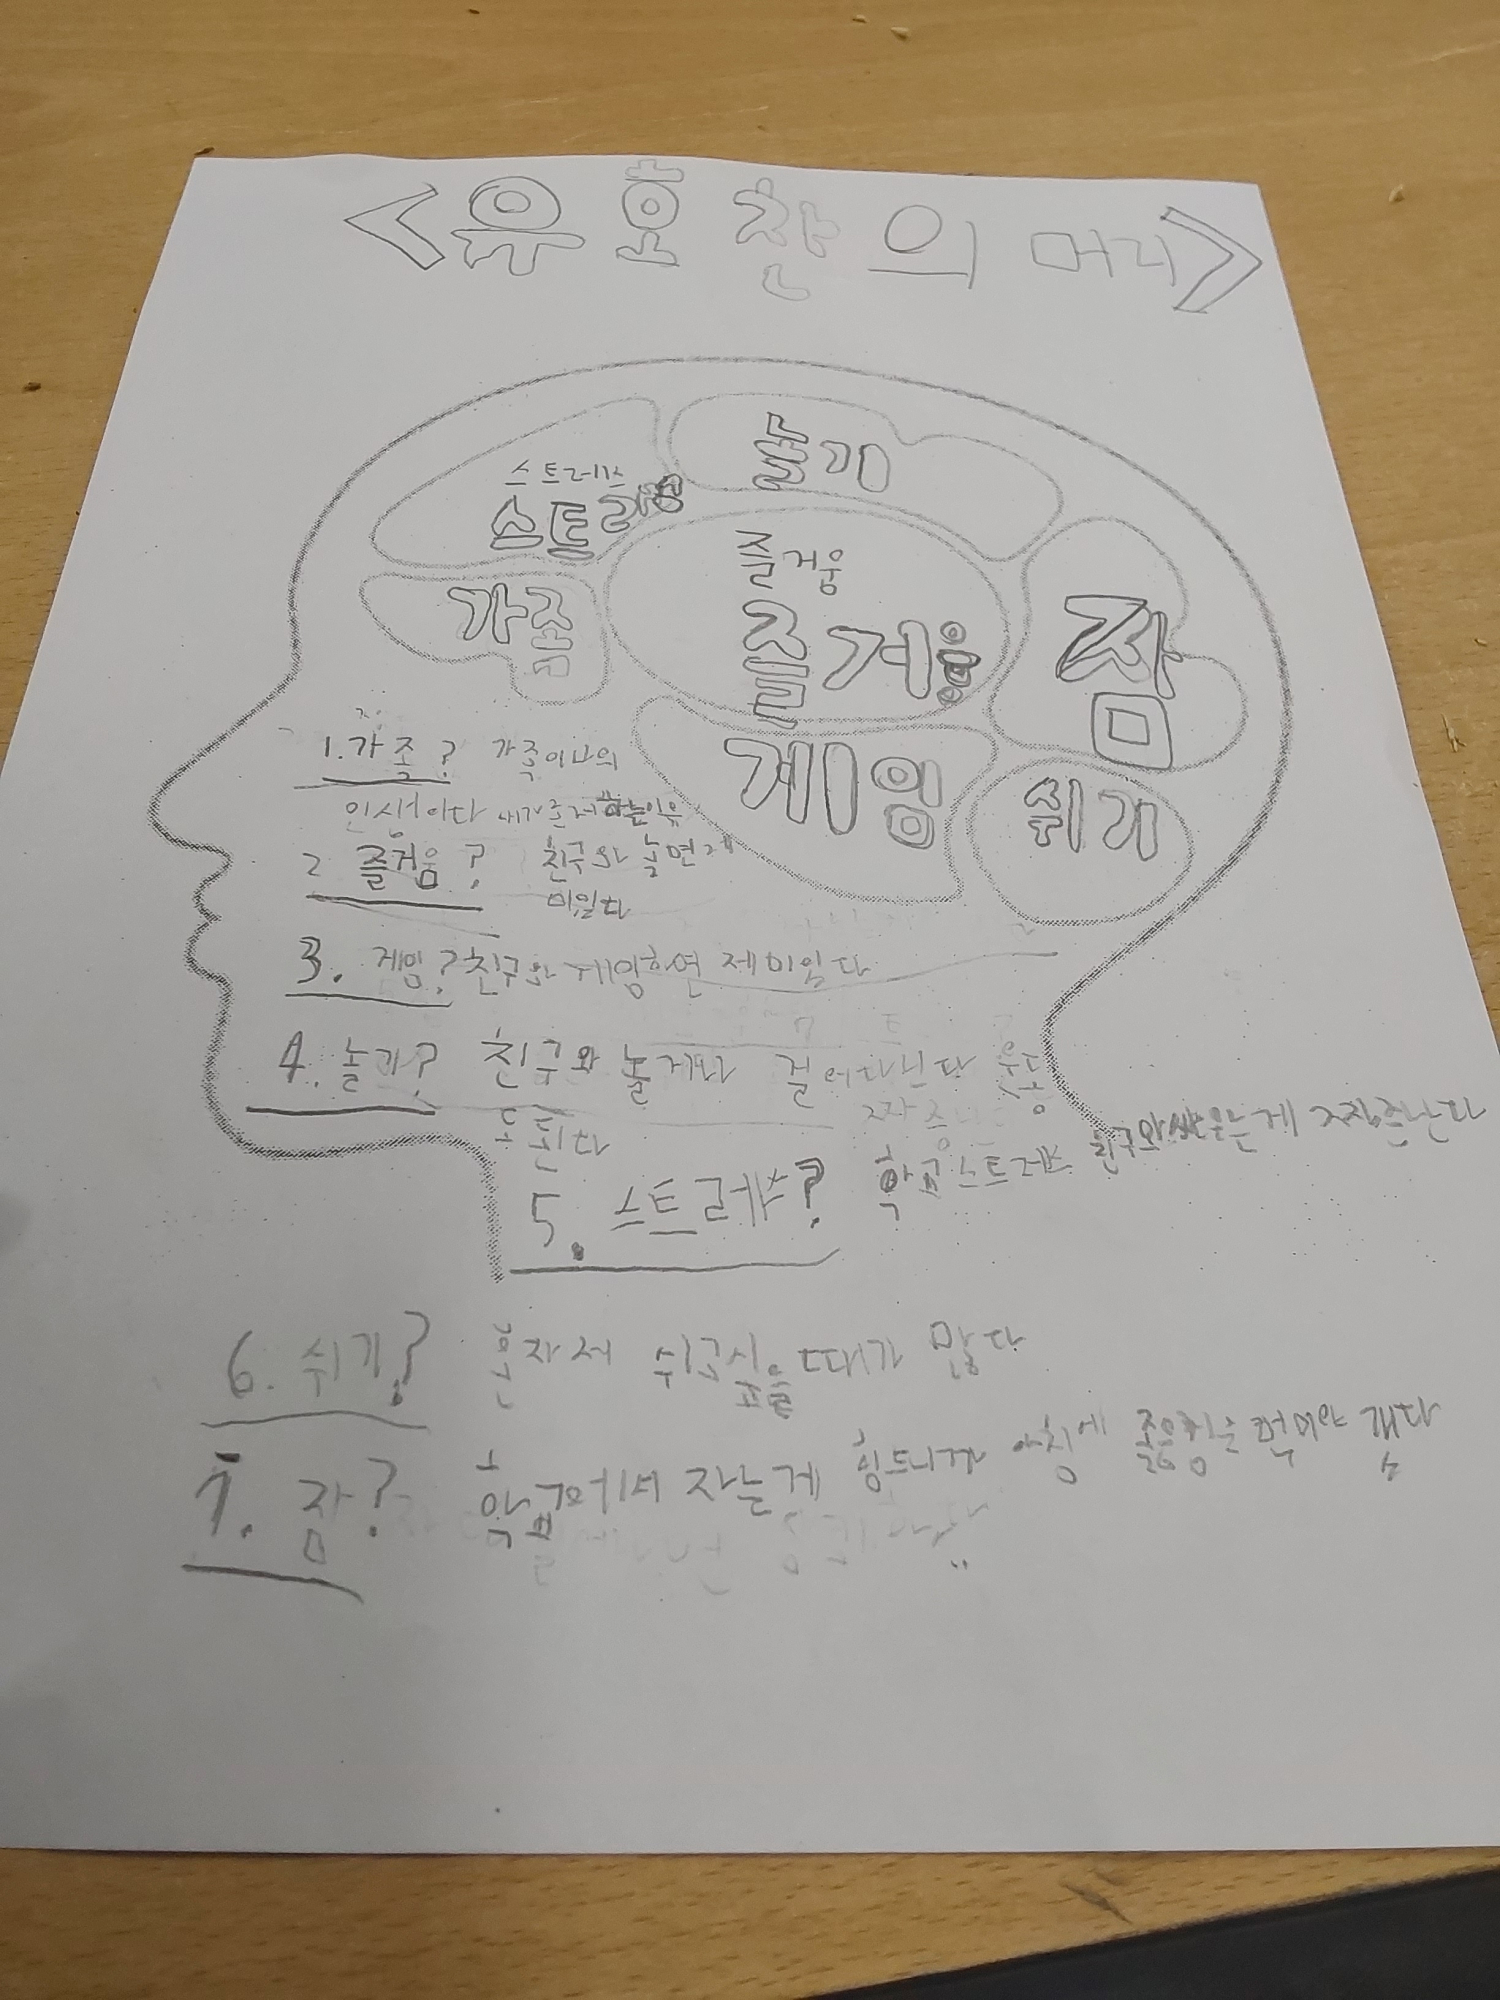 <유호찬의 머리>
스트레스
스트레스
놀기
가족
즐거움
즐거움
잠
게임
쉬기
1. 가족? 가족이 나의
인생이다 내가 존재하는 이유
2 즐거움? 친구와 놀면 재
미있다
3. 게임? 친구와 게임하면 제미있다
4. 놀기? 친구와 놀거나 걸어다닌다 운동
도 된다
5. 스트레스? 학교 스트레스 친구와 싸우는게 짜증난다
6. 쉬기? 혼자서 쉬고싶을 때가 많다
7. 잠? 학교에서 자는게 힘드니까 아침에